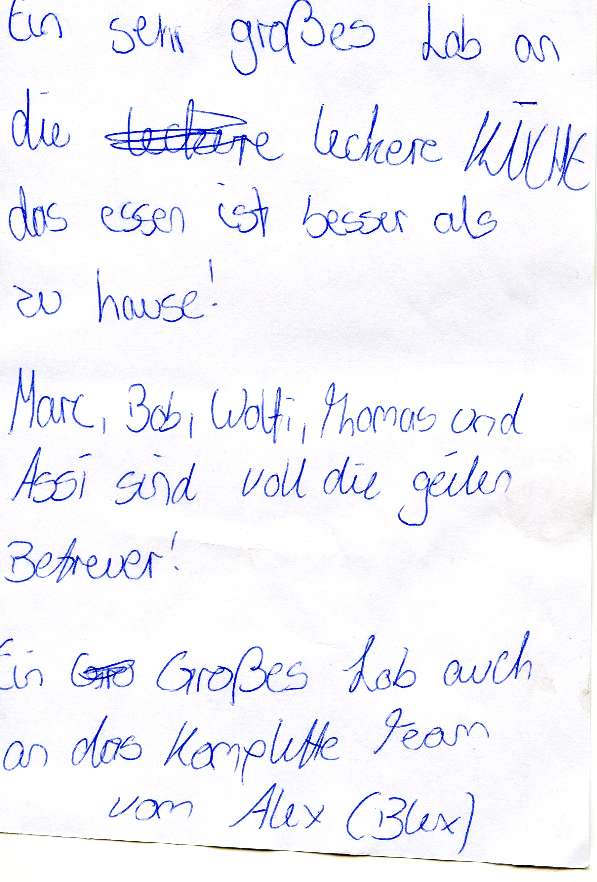 Ein sehr großes Lob an
die leckere leckere KÜCHE
das essen ist besser als
zu hause!
Marc, Bob, Wolfi, Thomas und
Assi sind voll die geilen
Betreuer!
Ein Gro Großes Lob auch
an das Komplette Team
vom Alex (Blex)